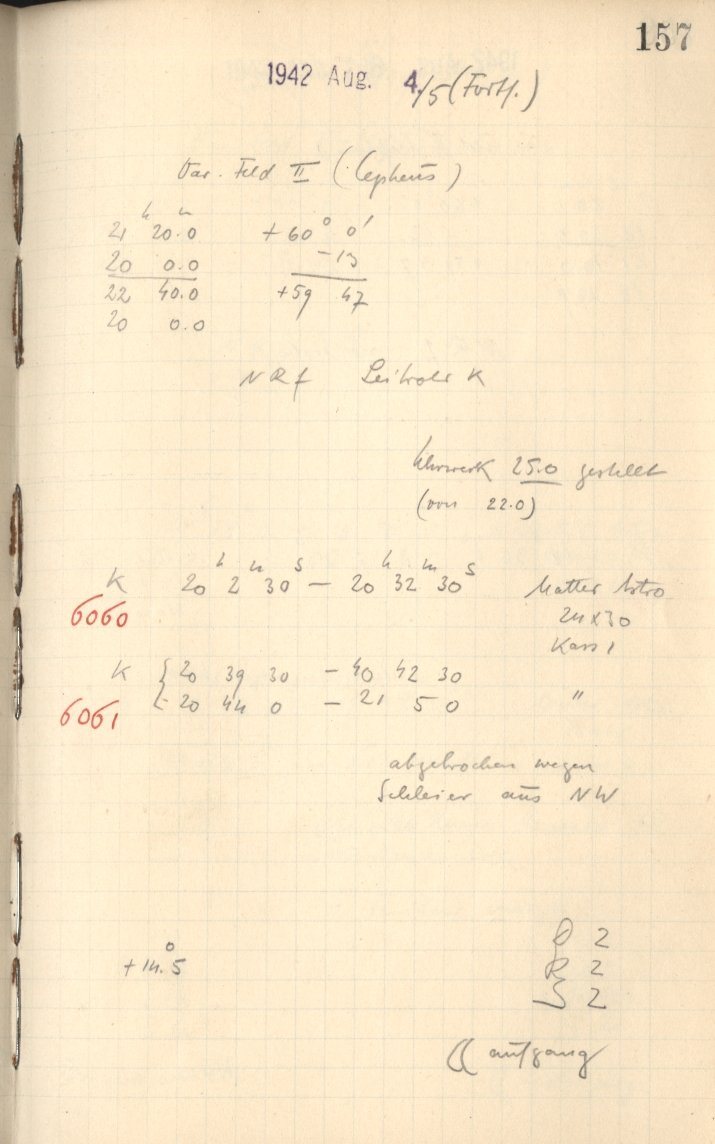 157
1942 Aug. 4./5 (Forts.)
Var. Feld II (Cepheus)
h m
21 20.0 +60° 0'
20 0.0 -13
22 40.0 +59 47
20 0.0
Leitrohr K
Uhrwerk 25.0 gestellt
(von 22.0)
h m s h m s
K 20 2 30 – 20 32 30 Matter Astro
6060 24x30
Kass 1
K { 20 39 30 – 40 42 30
6061 20 44 0 – 21 5 0 "
abgebrochen wegen
Schleier aus NW
+14.°5
2
R 2
S 2
☾ aufgang